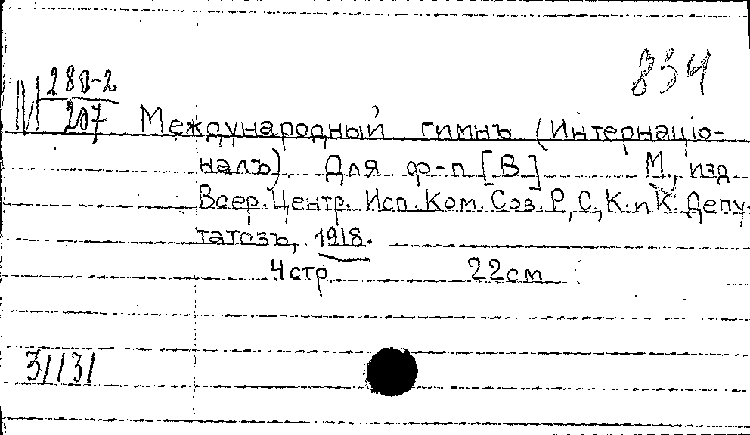 834
М 280-2
207
Международный гимнъ (Интернаціо-
налъ). Для ф-п [В] М., изд.
Всер. Центр. Исп. Ком. Сов. Р., С., К. и К. Депу-
татовъ, 1918.
4 стр. 22 см
31131